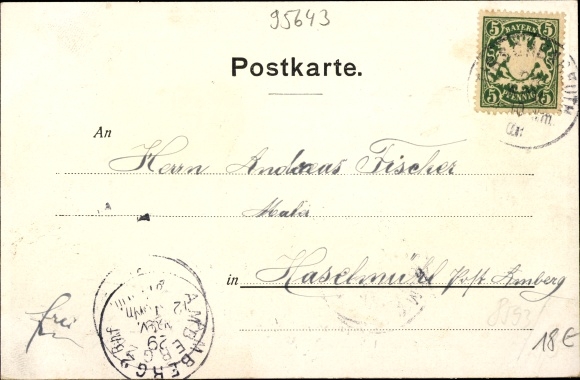 95643
BAYERN
5 5
5 PFENNIG 5
Postkarte.
An
Herrn Andreas Fischer
Maler
in Haselmühl Post Amberg
AMBERG 2
29
NOV.
frei
18 E